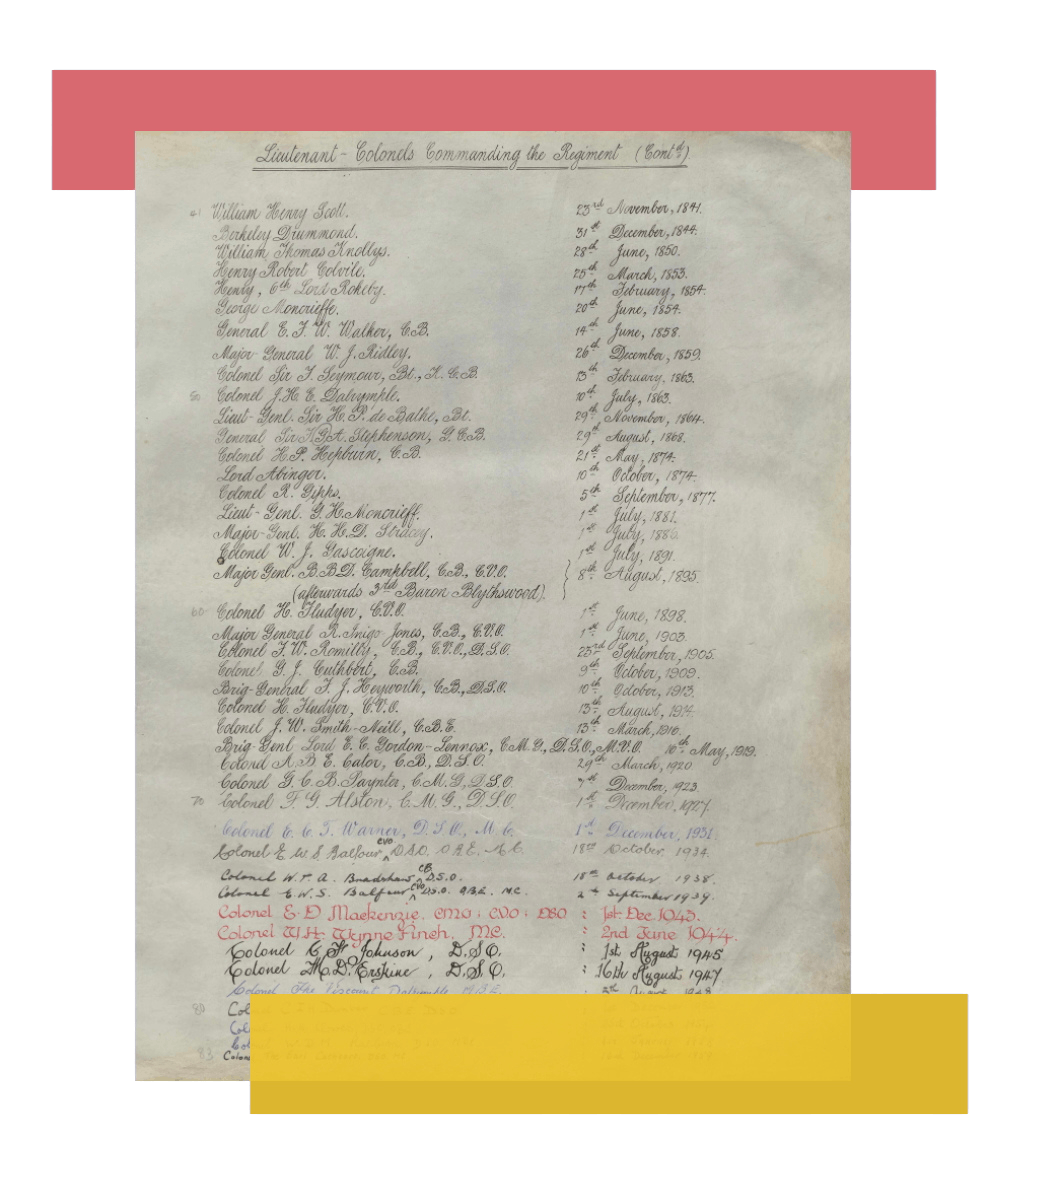 Lieutenant-Colonels Commanding the Regiment (Contd)
41 William Henry Scott. 23rd November, 1841.
Berkeley Drummond. 31st December, 1844.
William Thomas Knollys. 28th June, 1850.
Henry Robert Colvile. 25th March, 1853.
Henry, 6th Lord Rokeby. 17th February, 1854.
George Moncrieffe. 20th June, 1854.
General E. F. W. Walker, C.B. 14th June, 1858.
Major-General W. J. Ridley. 26th December, 1859.
Colonel Sir F. Seymour, Bt., K.C.B. 13th February, 1863.
50 Colonel J.H.E. Dalrymple. 10th July, 1863.
Lieut-Genl. Sir H. P. de Bathe, Bt. 29th November, 1864.
General Sir F.C.A. Stephenson, G.C.B. 29th August, 1868.
Colonel H.P. Hepburn, C.B. 21st May, 1874.
Lord Abinger. 10th October, 1874.
Colonel R. Gipps. 5th September, 1877.
Lieut-Genl. G.H. Moncrieff. 1st July, 1881.
Major-Genl. H. H.D. Stracey. 1st July, 1886.
Colonel W. J. Gascoigne. 1st July, 1891.
Major Genl. B.B.D. Campbell, C.B., C.V.O. 8th August, 1895.
(afterwards 3rd Baron Blythswood).
60 Colonel H. Fludyer, C.V.O. 1st June, 1898.
Major General R. Inigo Jones, C.B., C.V.O. 1st June, 1903.
Colonel F. W. Romilly, C.B., C.V.O., D.S.O. 23rd September, 1905.
Colonel G. J. Cuthbert, C.B. 9th October, 1909.
Brig-General F. J. Heyworth, C.B., D.S.O. 10th October, 1913.
Colonel H. Fludyer, C.V.O. 13th August, 1914.
Colonel J. W. Smith-Neill, C.B.E. 13th March, 1916.
Brig-Genl Lord E. C. Gordon-Lennox, C.M.G., D.S.O., M.V.O. 16th May, 1919.
Colonel A.B. E. Cator, C.B., D.S.O. 29th March, 1920
Colonel G. C. B. Paynter, C.M.G, D.S.O. 7th December, 1923.
70 Colonel F. G. Alston, C.M.G., D.S.O. 1st December, 1927.
Colonel E. C. T. Warner, D.S.O., M.C. 1st December, 1931.
Colonel E W S Balfour, CVO D.S.O. O.B.E. M.C. 18th October 1934.
Colonel W.T. A. Bradshaw CB D.S.O. 18th October 1938.
Colonel E.W.S. Balfour CVO D.S.O. O.B.E. M.C. 2nd September 1939.
Colonel E D Mackenzie, CMG; CVO; DSO : 1st Dec 1943.
Colonel W.H. Wynne Finch, MC. : 2nd June 1944.
Colonel C F Johnson, D.S.O. : 1st August 1945
Colonel H.D. Erskine, D.S.O. : 16th August 1947
Colonel The Viscount Dalrymple, M.B.E. August 1948
80
83